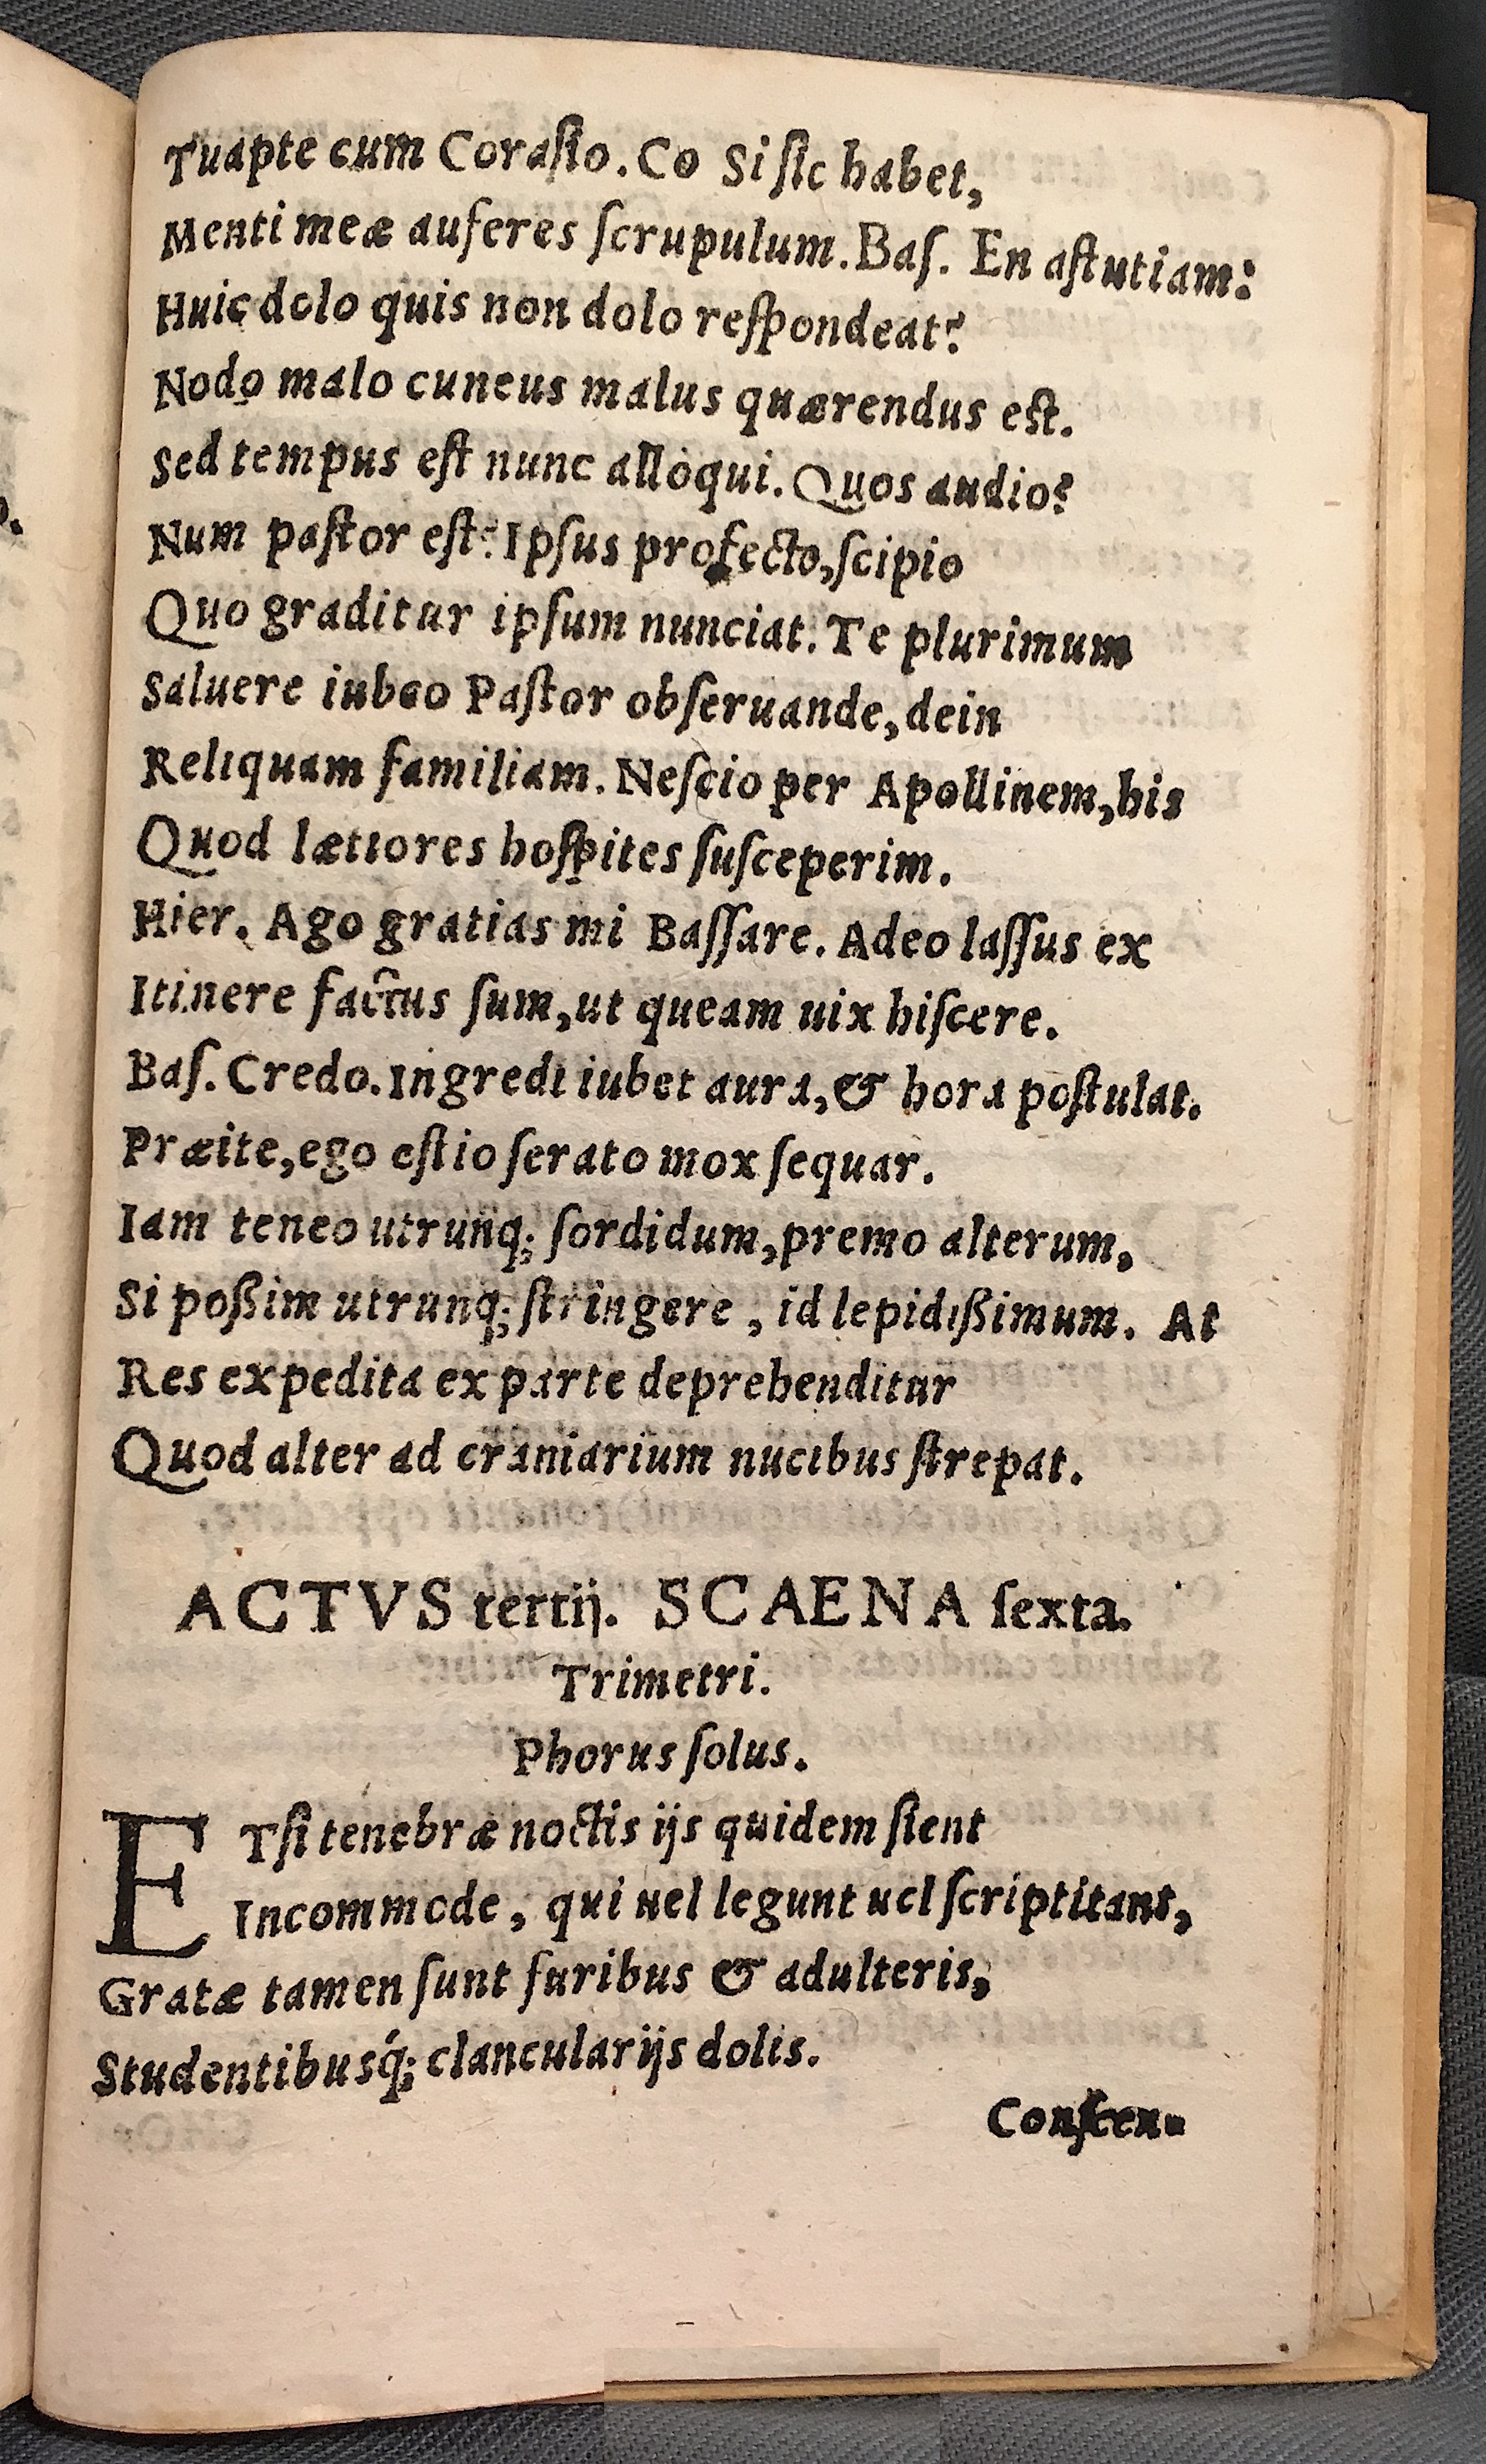 Tuapte cum Coraſio. Co Si ſic habet,
Menti meæ auferes ſcrupulum. Baſ. En aſtutiam:
Huic dolo quis non dolo reſpondeat?
Nodo malo cuneus malus quærendus eſt.
Sed tempus eſt nunc alloqui. Quos audio?
Num paſtor eſt? Ipſus profecto, ſcipio
Quo graditur ipſum nunciat. Te plurimum
Saluere iubeo Paſtor obſeruande, dein
Reliquam familiam. Neſcio per Apollinem, his
Quod lætiores hoſpites ſuſceperim.
Hier. Ago gratias mi Baſſare. Adeo laſſus ex
Itinere factus ſum, ut queam uix hiſcere.
Baſ. Credo. Ingredi iubet aura, & hora poſtulat.
Præite, ego eſtio ſerato mox ſequar.
Iam teneo utrunq; ſordidum, premo alterum,
Si poßim utrunq; ſtringere, id lepidißimum. At
Res expedita ex parte deprehenditur
Quod alter ad craniarium nucibus ſtrepat.
ACTVS tertij. SCAENA ſexta.
Trimetri.
Phorus ſolus.
ETſi tenebræ noctis ijs quidem ſient
Incommode, qui uel legunt uel ſcriptitant,
Gratæ tamen ſunt furibus & adulteris,
Studentibusq́; clancularijs dolis.
Conſcen-